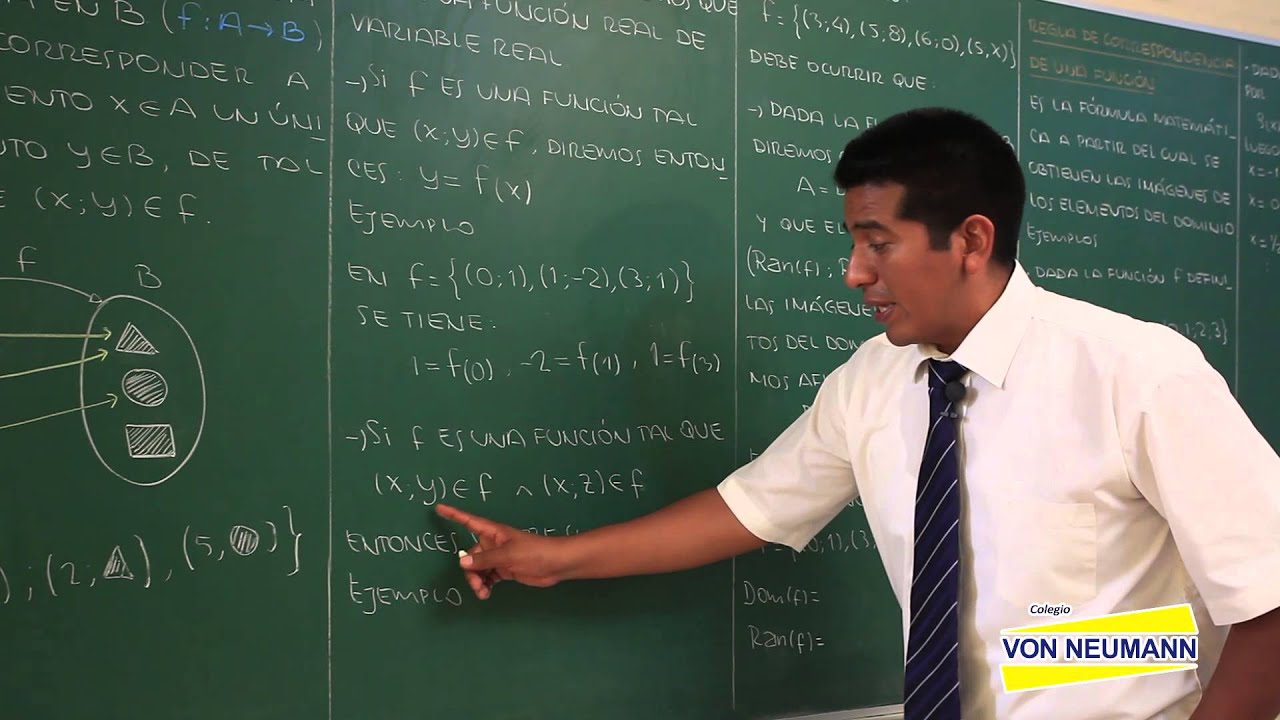 EN B (f: A→B)
CORRESPONDER A
X∈A UN ÚNI
Y∈B, DE TAL
(X;Y)∈f.
f
B
; (2; ), (5, )}
QUE
FUNCIÓN REAL DE
VARIABLE REAL
→ Si f ES UNA FUNCIÓN TAL
QUE (x;y)∈f, DIREMOS ENTON_
CES: y= f(x)
EJEMPLO
EN f={(0;1),(1;-2),(3;1)}
SE TIENE:
1=f(0), -2=f(1), 1=f(3)
→ Si f ES UNA FUNCIÓN TAL QUE
(x;y)∈f ∧ (x;z)∈f
ENTONCES
EJEMPLO
f={(3;4),(5,8),(6;0),(5,X)}
DEBE OCURRIR QUE:
→ DADA LA
DIREMOS
A=
Y QUE
(Ran(f);
LAS
TOS DEL
MOS
1),(3,
Dom(f)=
Ran(f)=
REGLA DE CORRESPONDENCIA
DE UNA FUNCIÓN
ES LA FÓRMULA MATEMÁTI_
CA A PARTIR DEL CUAL SE
OBTIENEN LAS IMÁGENES DE
LOS ELEMENTOS DEL DOMINIO
EJEMPLOS
. DADA LA FUNCIÓN f DEFINI_
1;2,3}
• DADA
POR
LUEGO
X=-1
X=0
X=1/2
Colegio
VON NEUMANN